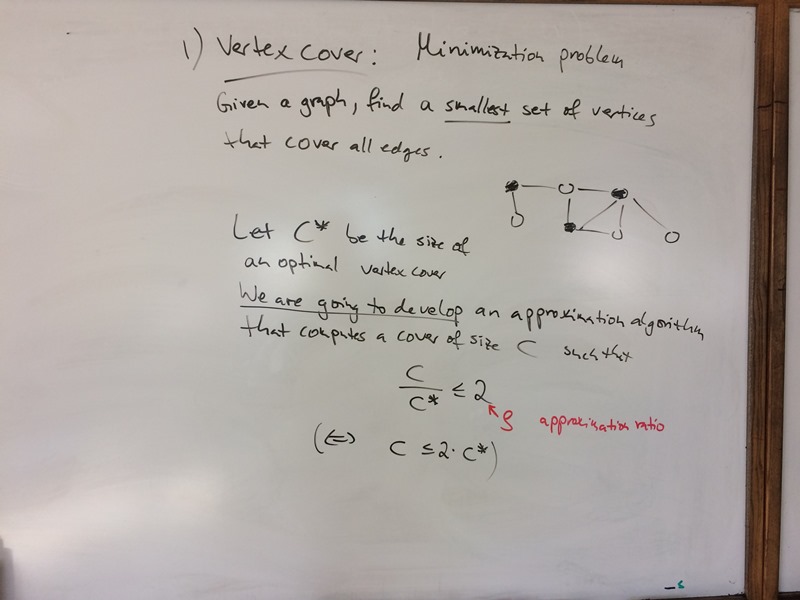 1) Vertex cover: Minimization problem
Given a graph, find a smallest set of vertices
that cover all edges.
Let C* be the size of
an optimal vertex cover
We are going to develop an approximation algorithm
that computes a cover of size C such that
C
C* ≤ 2
ρ approximation ratio
(⇔ C ≤ 2 · C*)